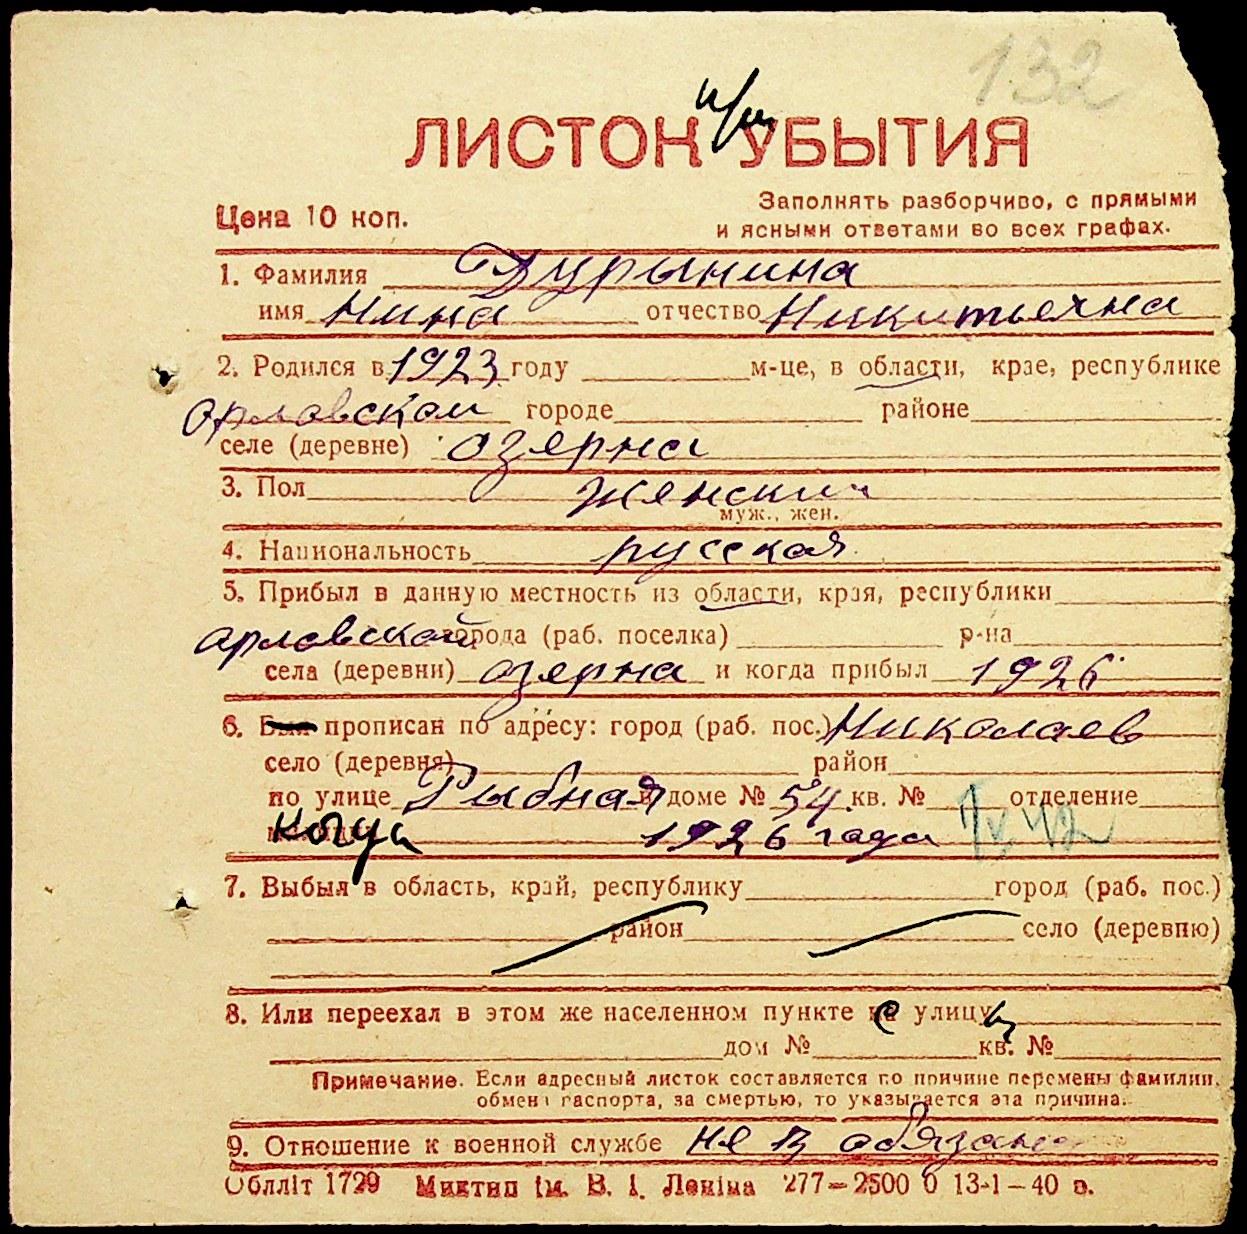 132
ЛИСТОК УБЫТИЯ
Цена 10 коп.
Заполнять разборчиво, с прямыми
и ясными ответами во всех графах.
1. Фамилия Дурынина
имя Нина отчество Никитьечна
2. Родился в 1923 году м-це, в области, крае, республике
орловской городе районе
селе (деревне) озерна
3. Пол женский
муж., жен.
4. Национальность русская
5. Прибыл в данную местность из области, края, республики
орловской города (раб. поселка) р-на
села (деревни) озерна и когда прибыл 1926
6. Был прописан по адресу: город (раб. пос.) Николаев
село (деревня) район
по улице Рыбная в доме № 54 кв. № отделение
когда 1926 года
7. Выбыл в область, край, республику город (раб. пос.)
район село (деревню)
8. Или переехал в этом же населенном пункте с улицы
дом № кв. №
Примечание. Если адресный листок составляется по причине перемены фамилии,
обмена паспорта, за смертью, то указывается эта причина.
9. Отношение к военной службе не в обязана
Обллiт 1729 Миктип iм. В. I. Ленiна 277—2500 0 13-1—40 в.